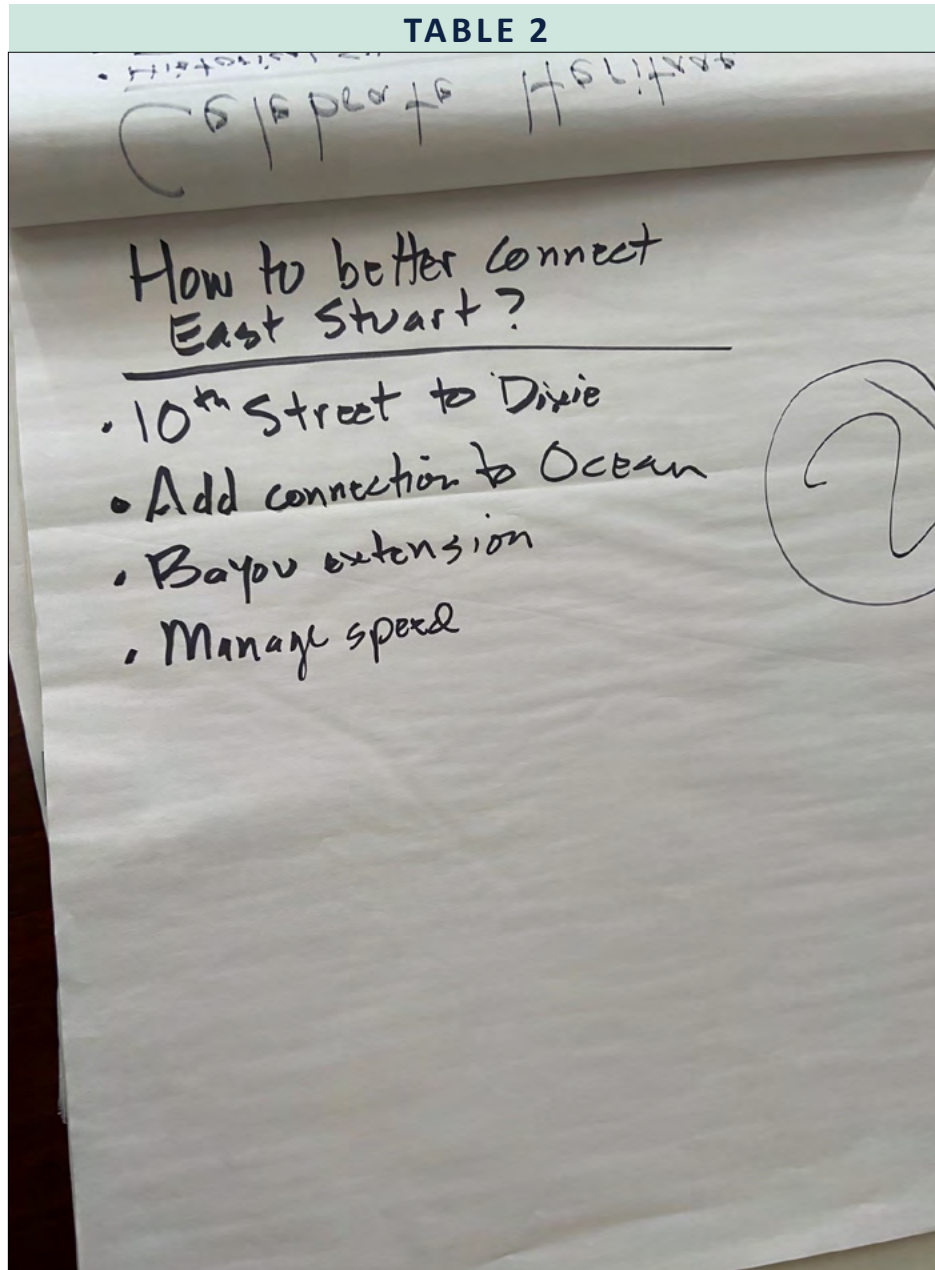 TABLE 2
How to better connect
East Stuart?
• 10th Street to Dixie
• Add connection to Ocean
• Bayou extension
• Manage speed
2